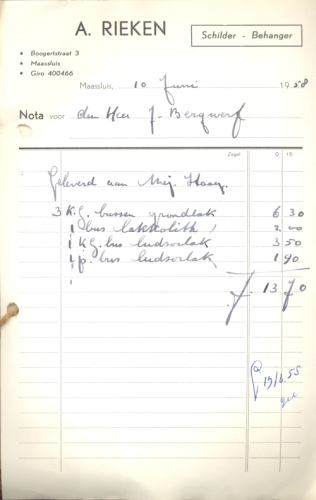 A. RIEKEN
Schilder - Behanger
• Boogertstraat 3
• Maassluis
• Giro 400466
Maassluis, 10 Juni 1958
Nota voor den Heer J. Bergwerf
Zegel 0 15
Geleverd aan Mej. Haay.
3 K.G. bussen grondlak 6 30
1 bus lakkolith 2 00
1 K.G. bus ludsorlak 3 50
1 p. bus ludsorlak 1 90
f. 13 70
19/6.55